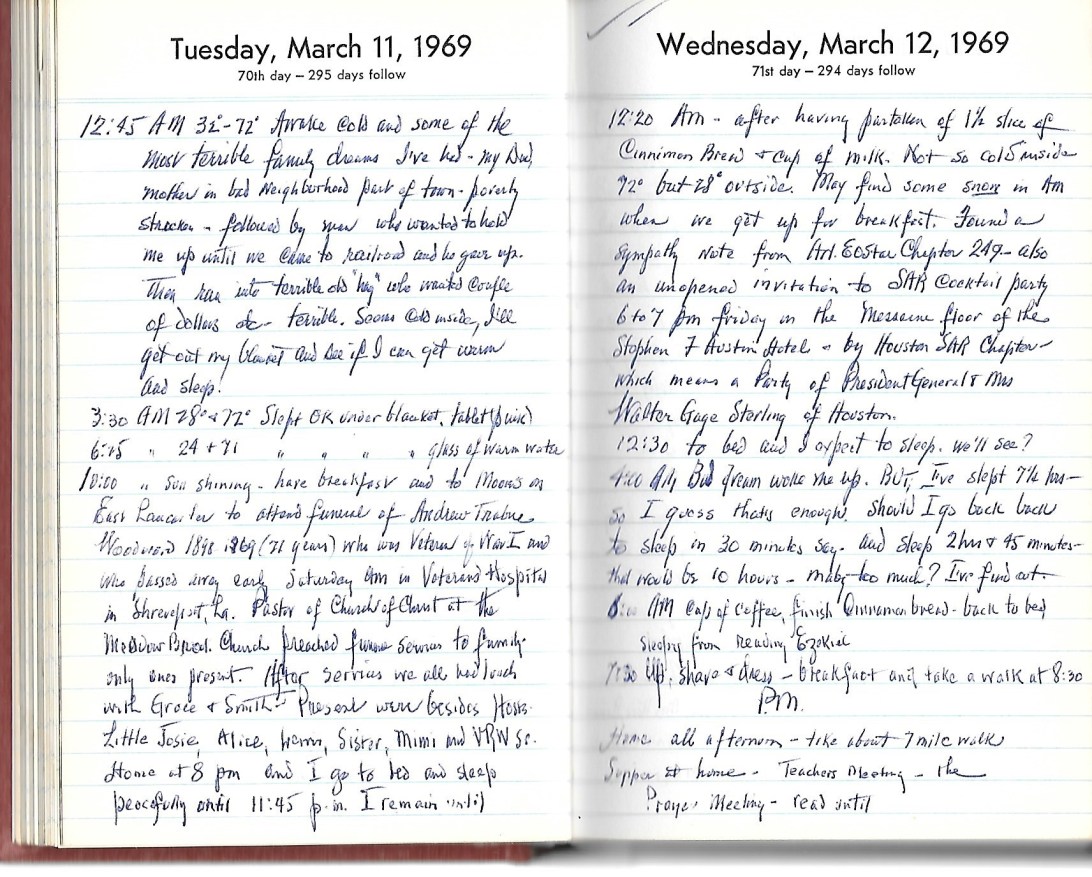 Tuesday, March 11, 1969
70th day – 295 days follow
12:45 AM 32°-72° Awake cold and some of the
most terrible family dreams I've had - my Dad,
mother in bad Neighborhood part of town - poverty
stricken - followed by man who wanted to hold
me up until we came to railroad and he gave up.
Then ran into terrible old "hag" who wanted couple
of dollars etc - terrible. Seems cold inside, I'll
get out my blanket and see if I can get warm
and sleep!
3:30 AM 28° & 72° Slept OK under blanket, tablet
6:45 " 24 + 71 " " " " glass of warm water
10:00 " Sun shining - have breakfast and to Moores on
East Lancaster to attend funeral of Andrew Trabue
Woodward 1898 1969 (71 years) who was Veteran of War I and
who passed away early Saturday Am in Veterans Hospital
in Shreveport, La. Pastor of Church of Christ at the
Meadow Brook Church preached funeral services to family
only ones present. After services we all had lunch
with Grace & Smith - Present were besides Hosts
Little Josie, Alice, Sister, Mimi and VRW Sr.
Home at 8 pm and I go to bed and sleep
peacefully until 11:45 p.m. I remain until
Wednesday, March 12, 1969
71st day – 294 days follow
12:20 Am - after having partaken of 1½ slice of
Cinnimon Bread & cup of milk. Not so cold inside
72° but 28° outside. May find some snow in Am
when we get up for breakfast. Found a
Sympathy Note from Arl. EoStar Chapter 249 - also
an unopened invitation to SAR Cocktail party
6 to 7 pm Friday in the Mezzanine floor of the
Stephen F Austin Hotel - by Houston SAR Chapter -
which means a Party of President General & Mrs
Walter Gage Sterling of Houston.
12:30 to bed and I expect to sleep. we'll see?
4:00 AM Bad dream woke me up. BUT, I've slept 7½ hrs -
so I guess thats enough. Should I go back back
to sleep in 30 minutes say - and sleep 2 hrs & 45 minutes -
that would be 10 hours - maby too much? I've find out.
AM Cup of Coffee, finish Cinnamon bread - back to bed,
sleepy from reading Ezekiel
7:30 Up, shave & dress - breakfast and take a walk at 8:30
P.M.
Home all afternoon - take about 7 mile walk
Supper at home - Teachers Meeting - the
Prayer Meeting - read until